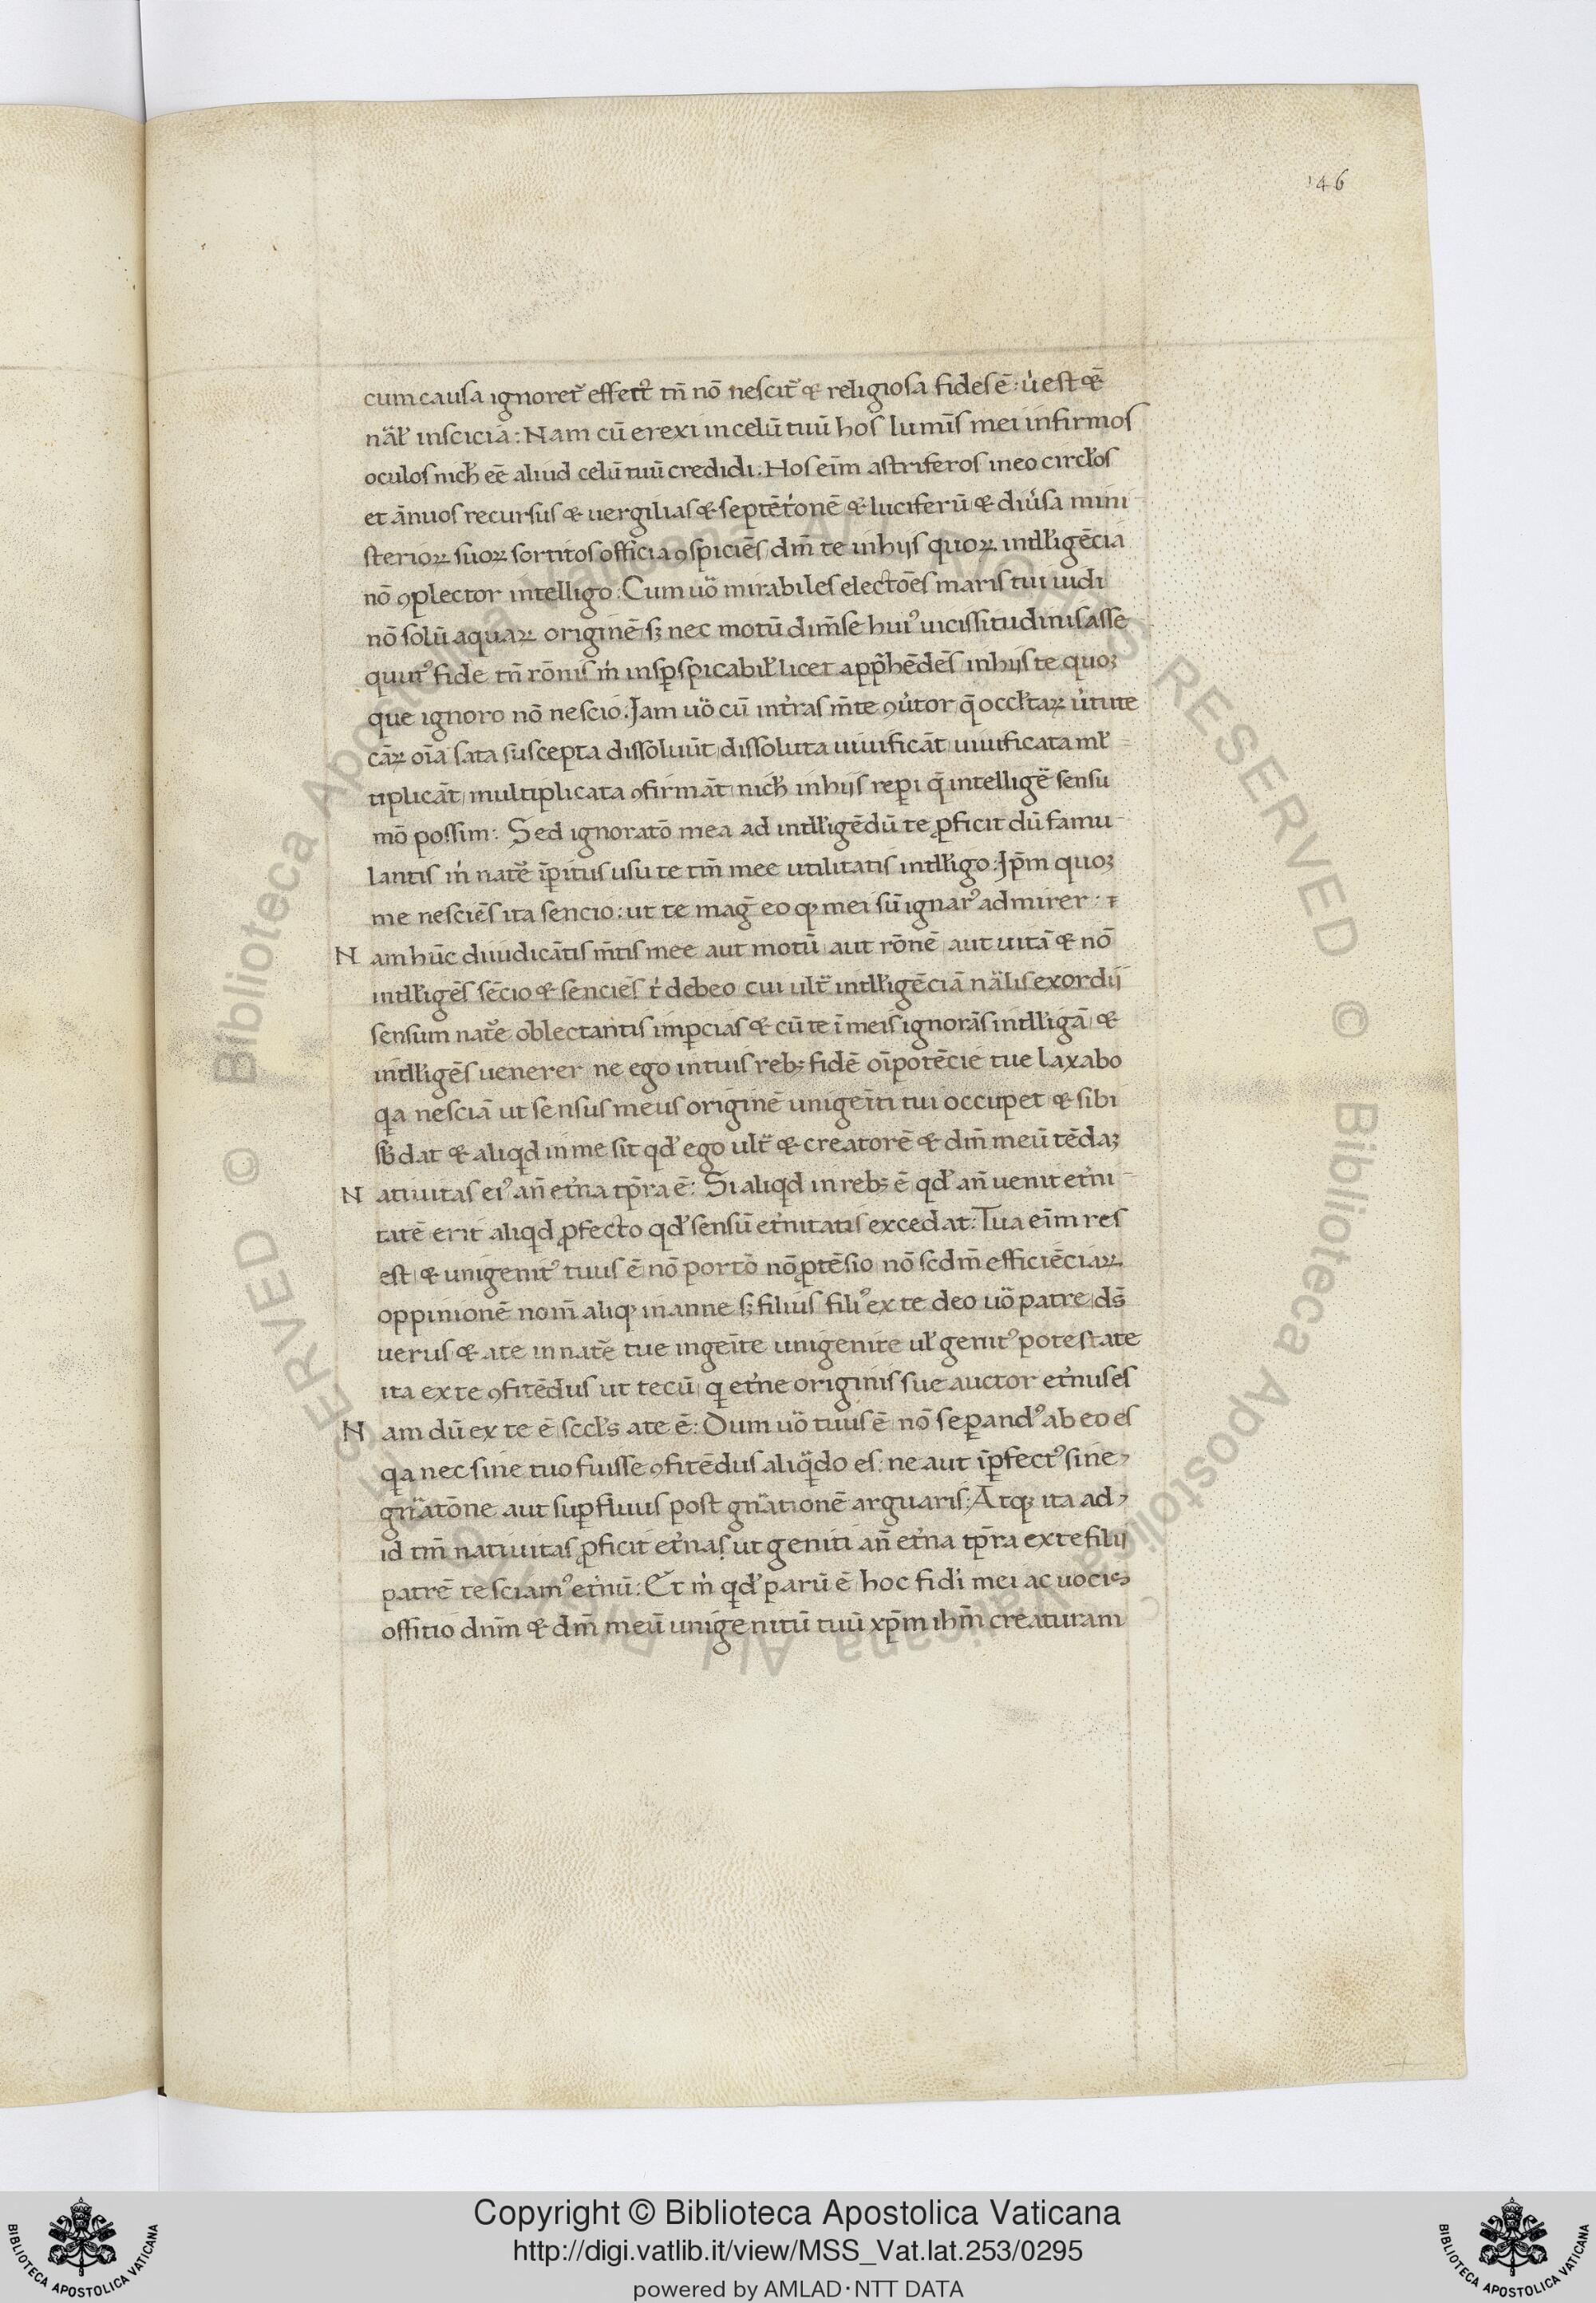 146
cum causa ignoret᷑ effect᷑ tn̄ nō nescit᷑ & religiosa fides ē: u̇ est & ē
nal̃r inscicia: Nam cū erexi in celū tuū hos lumīs mei infirmos
oculos nich̃ eē aliud celū tuū credidi: Hos eīm astriferos in eo circl̃os
et ānuos recursus & uergilias & septētrionē & luciferū & diu̇sa mini
sterioꝝ suoꝝ sortitos officia ꝯspiciēs dm̄ te in hijs quoꝝ intll̃igēcia
nō ꝯplector intelligo: Cum uö mirabiles electōes maris tui uidi
nō solū aquaꝝ originē sꝫ nec motū dim̄se huiꝰ uicissitudinis asse
quutꝰ fide tn̄ rōnis m̄ insꝑspicabil̃ licet appr̃hēdēs in hijs te quoꝫ
que ignoro nō nescio. Jam uö cū int̃ras m̄te ꝯu̇tor q̄ occl̃taꝝ u̇tute
cāꝝ oīa sata suscepta dissoluūt dissoluta uiuificāt uiuificata ml̃
tiplicāt multiplicata ꝯfirmāt nich̃ in hijs reꝑi q̄ intelligē sensu
mō possim: Sed ignoratō mea ad intll̃igēdū te ꝓficit dū famu
lantis m̄ natē īꝑitus usu te tm̄ mee utilitatis intll̃igo: Jp̄m quoꝫ
me nesciēs ita sencio: ut te mag̃ eo qꝫ mei sū ignarꝰ admirer:
N am hūc diiudicātis m̄tis mee aut motū aut rōnē aut uitā & nō
intll̃igēs sēcio & senciēs t̃ debeo cui ult̃ intll̃igēciā nal̃is exordij
sensum natē oblectantis imꝑcias & cū te ī meis ignorās intll̃igā &
intll̃igēs uenerer ne ego in tuis rebꝫ fidē oīpotēcie tue laxabo
qa nesciā ut sensus meus originē unigeīti tui occupet & sibi
sb̃dat & aliqd in me sit qd̃ ego ult̃ & creatorē & dm̄ meū tēdaꝫ
N atiuitas eiꝰ an̄ et̃na tp̄ra ē: Si aliqd in rebꝫ ē qd̃ an̄ uenit et̃ni
tatē erit aliqd ꝓfecto qd̃ sensū et̃nitatis excedat: Tua eīm res
est & unigenitꝰ tuus ē nō portō nō ꝓtēsio nō scdm̄ efficiēciaꝝ
oppinionē nom̄ aliqꝫ inanne sꝫ filius filiꝰ ex te deo uö patre ds̄
uerus & a te in natē tue ingeīte unigenite ul̃ genitꝰ potestate
ita ex te ꝯfitēdus ut tecū q et̃ne originis sue auctor et̃nus es
N am dū ex te ē sccl̃s a te ē: Dum uö tuus ē nō seꝑandꝰ ab eo es
qa nec sine tuo fuisse ꝯfitēdus aliqdo es: ne aut īꝑfectꝰ sine
gnatōne aut suꝑfluus post gnationē arguaris: Atqꝫ ita ad
id tm̄ natiuitas ꝓficit et̃nas ut geniti an̄ et̃na tp̄ra ex te filij
patrē te sciamꝰ et̃nū: Et m̄ qd̃ parū ē hoc fidi mei ac uocis
offitio dnm̄ & dm̄ meū unigenitū tuū xp̄m ihm̄ creaturam
Copyright © Biblioteca Apostolica Vaticana
http://digi.vatlib.it/view/MSS_Vat.lat.253/0295
powered by AMLAD·NTT DATA